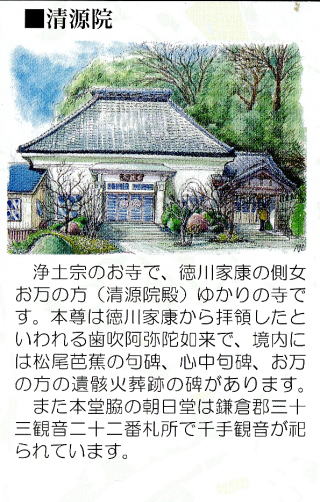 ■清源院
浄土宗のお寺で、徳川家康の側女
お万の方（清源院殿）ゆかりの寺で
す。本尊は徳川家康から拝領したと
いわれる歯吹阿弥陀如来で、境内に
は松尾芭蕉の句碑、心中句碑、お万
の方の遺骸火葬跡の碑があります。
また本堂脇の朝日堂は鎌倉郡三十
三観音二十二番札所で千手観音が祀
られています。